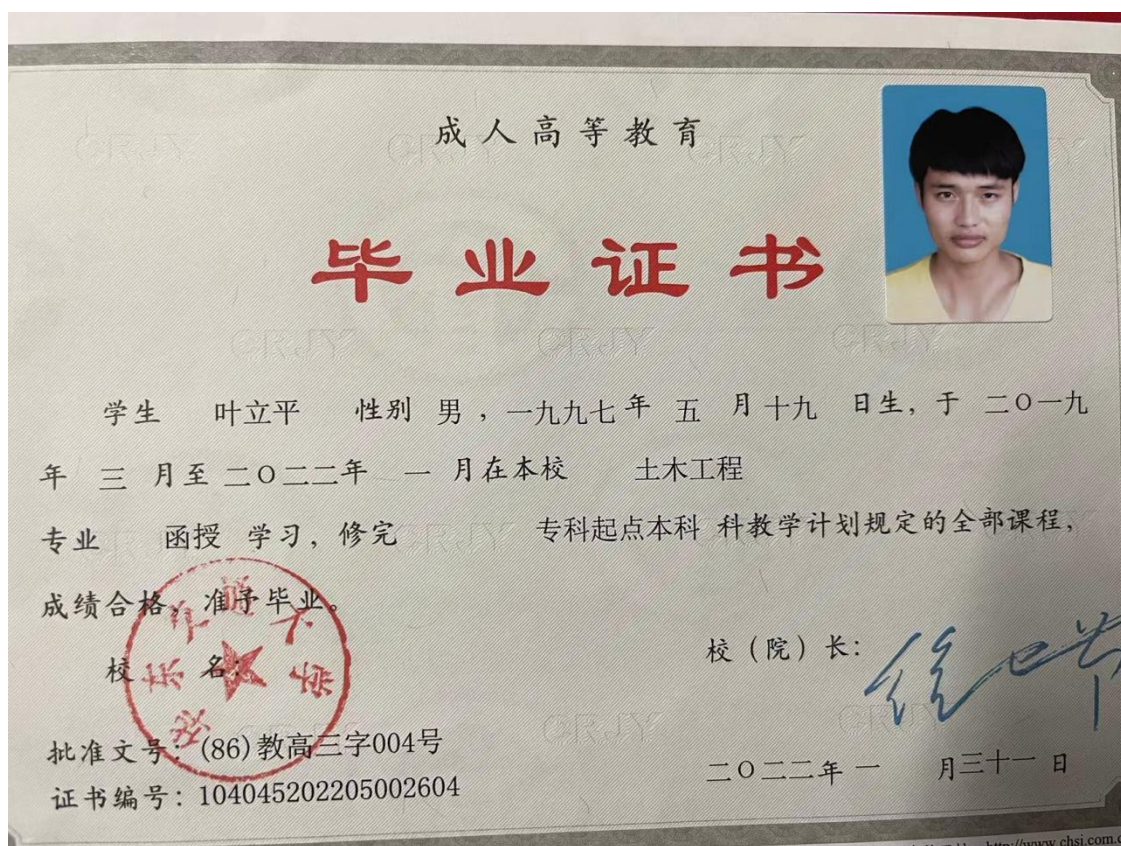 成人高等教育
毕业证书
学生 叶立平 性别 男，一九九七年 五 月十九 日生，于 二O一九
年 三 月至二O二二年 一 月在本校 土木工程
专业 函授 学习，修完 专科起点本科 科教学计划规定的全部课程，
成绩合格，准予毕业。
校 名：
华东交通大学
校（院）长：
批准文号：(86)教高三字004号
证书编号：104045202205002604
二O二二年 一 月三十一 日
http://www.chsi.com.c
CRJY